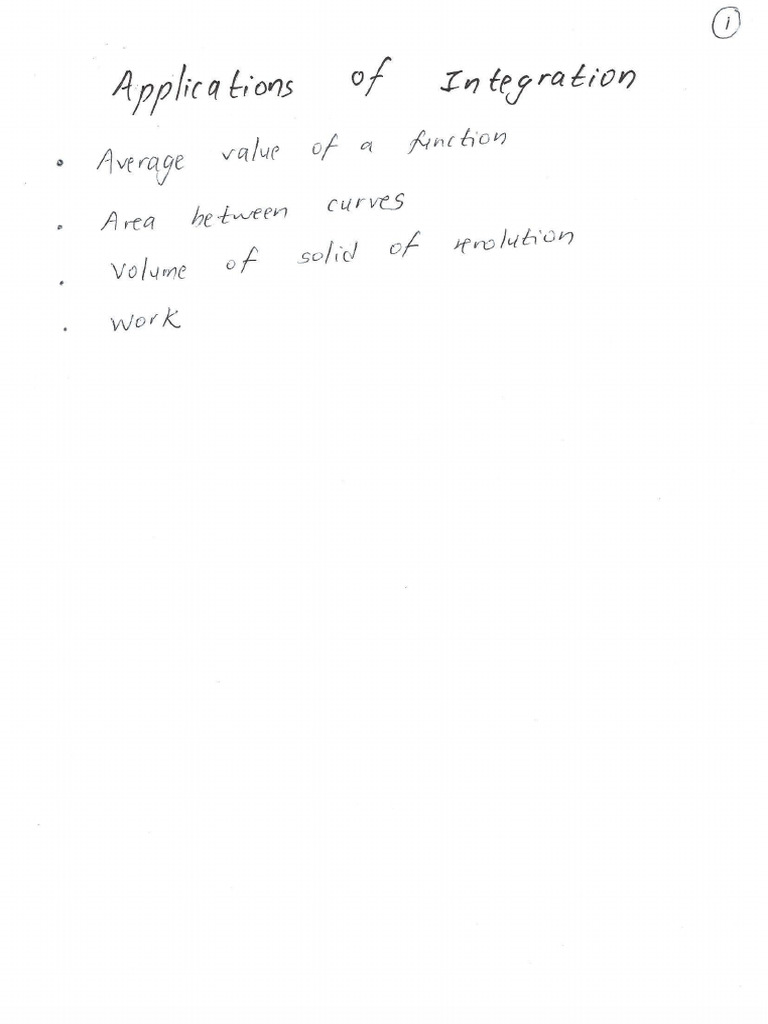 ①
Applications of Integration
• Average value of a function
• Area between curves
• Volume of solid of revolution
• Work